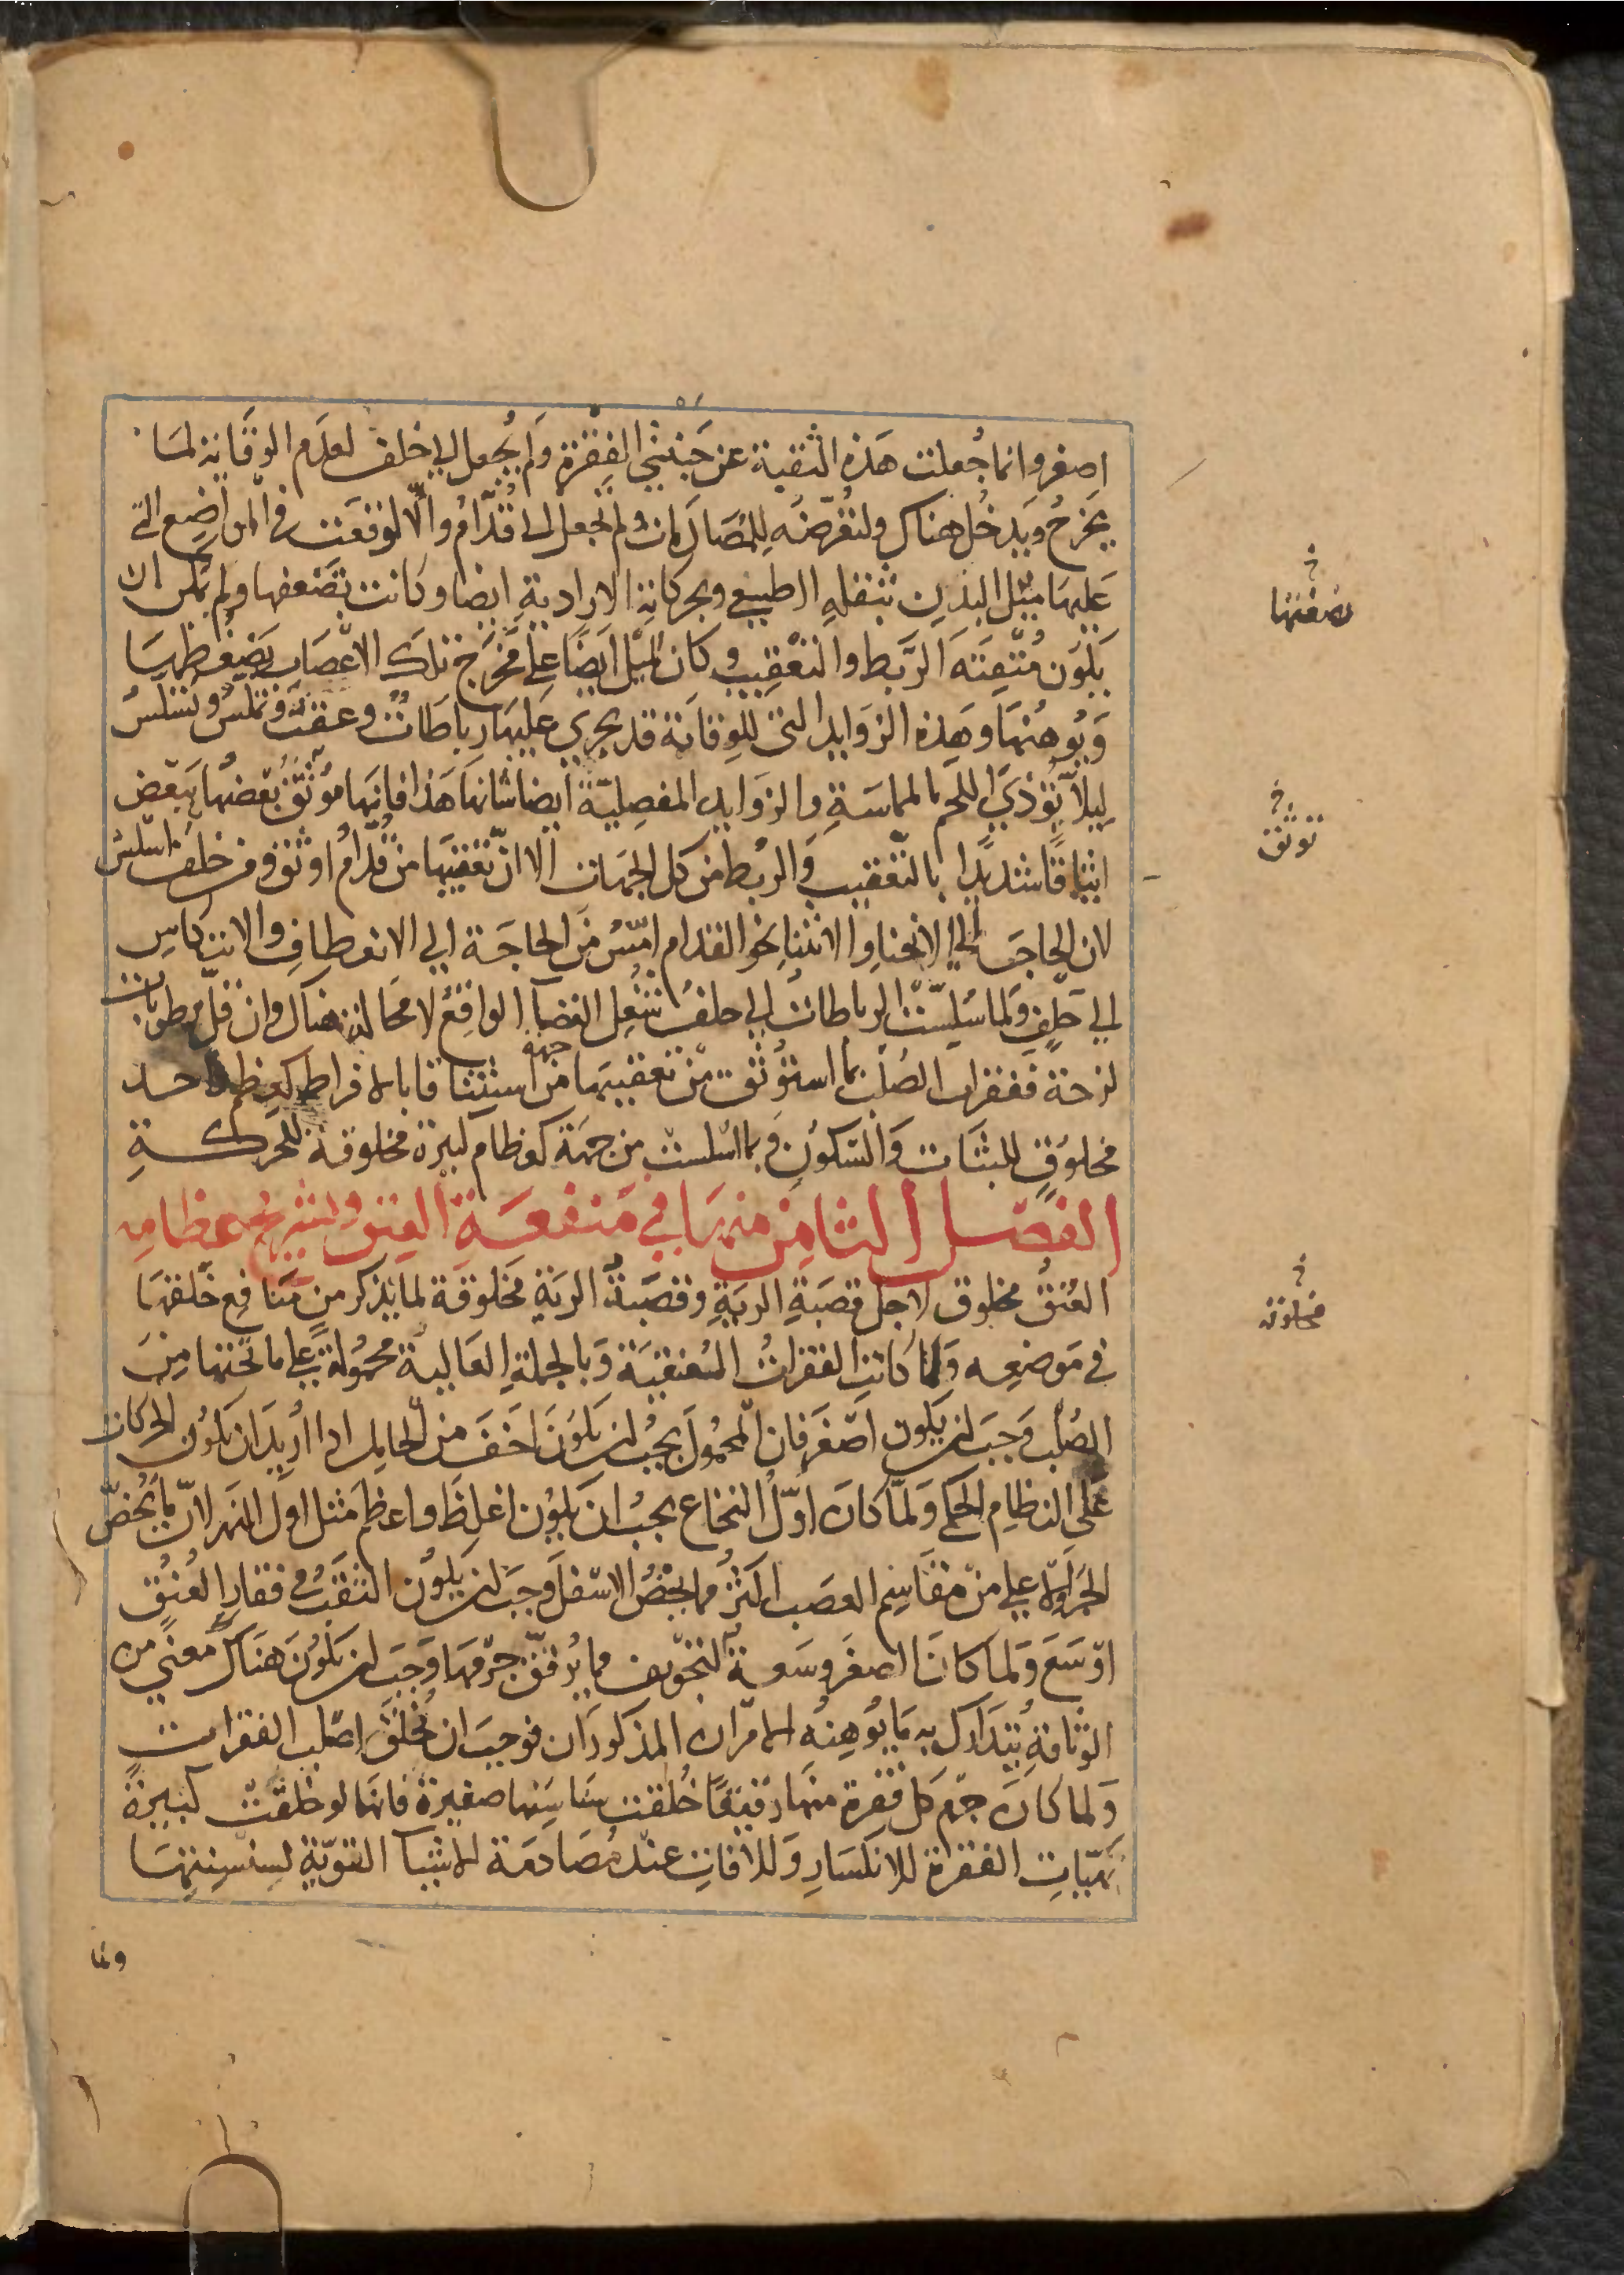 اصغر وانما جُعلت هَذه الثقبة عن جَنبتي الفِقْرة وَلم يُجعل الي خلف لعدَم الوقَاية لمَا
يَخرُج وَيَدخُل هناك ولتعُرّضه لِلمُصَادَمات ولم تُجعل الى قُدّام والّا لوَقعَت في المواضِع التي
عَليهَا ميْل البدن بثقله الطبيعي وبحركاته الاراديةِ ايضا وكَانت تضعفها ولم يمكن ان
يكون مُتقِنَة الرَّبط والتعْقِيب وكان الميْل ايضًا علي مخرَج تلك الاعصَاب يَضغُطهَا
وَيُوهنُهَا وهَذه الزوَايد التي للوقاية قد يجري عَليهَا رباطَاتٌ وعقبٌ وتملس وتسَلس
ليلاّ تؤذيَ اللحم بالمماسَةِ والزوَايد المفصِليّة ايضا شانهَا هَذا فانهَا مُوثق بَعْضهُا ببَعْض
ايثاقًا شديدًا بالتّعْقيب وَالربط من كل الجهَات الا انّ تعْقيبَهَا من قُدّام اوثق ومن خلف اسلس
لان الحاجَة الي الانحناِ والانثناِ نحو القدام امَسُّ منَ الحاجَة الي الانعطافِ والانتكاسِ
الي خلف وَلما سُلِّسَت الرباطاتُ الي خلف شغِل الفضآ الواقِع لا محَالة هناك وان قلّ برطوبَات
لزجة ففقرات الصُلب بما استوثق من تعقيبهَا من جهة استيثاقا بالافراط كعظم واحد
مخلوقٍ للثبَات وَالسّكوُنِ وبما اسلست من جهَة كعظام كثيرة مخلوقة للحركةِ
الفصْل الثامِن منهَا في منفعَة العنق وتشريح عظامهِ
العُنقُ مخلوق لاجل قصَبةِ الريَةِ وقصَبةُ الريَة مخلوقة لما يذكر من مَنافع خَلقهَا
في مَوضعِه وَلمّا كَانتِ الفقراتُ العُنقيَة وَبالجملةِ العَالية محمُولة علي ما تحتها منَ
الصُلب وَجَبَ ان يَكون اصْغَر فان المحمُولَ يجبُ ان يَكوُنَ اخفَ من الحامل اذا أريدَ ان يَكوُن الحركات
عَلي النظام الحكمي وَلمّا كان اوّلُ النخاع يجبُ ان يكون اغلظ واعظم مثل اول النهر لان ما يَخُصّ
الجزو الاعلي من مقاسِم العصَب اكثرُ مما يخصُّ الاسْفل وَجبَ ان يكون الثقبُ في فقارِ العُنُقِ
اوْسَعَ وَلما كانَ الصغَر وسَعةُ التجْويف مما يُرققُ جرْمهَا وَجبَ ان يَكوُنَ هنَاك معنًي من
الوثاقةِ يُتدَارك به مَا يُوهِنُه الامران المذكورَان فوجبَ ان تُخلقَ اصلب الفقرات
وَلما كان جرم كل فقرة منهَا رقيقًا خُلقت سناسِنها صغيرة فانهَا لو خلقت كبيرة
تهيّات الفقرة للانكسَارِ وَللافَاتِ عندَ مُصَادمَة الاشيآ القوِيّة لسِنسِنتِهَا
ولما
تضغطها
توثق
مخلوقة